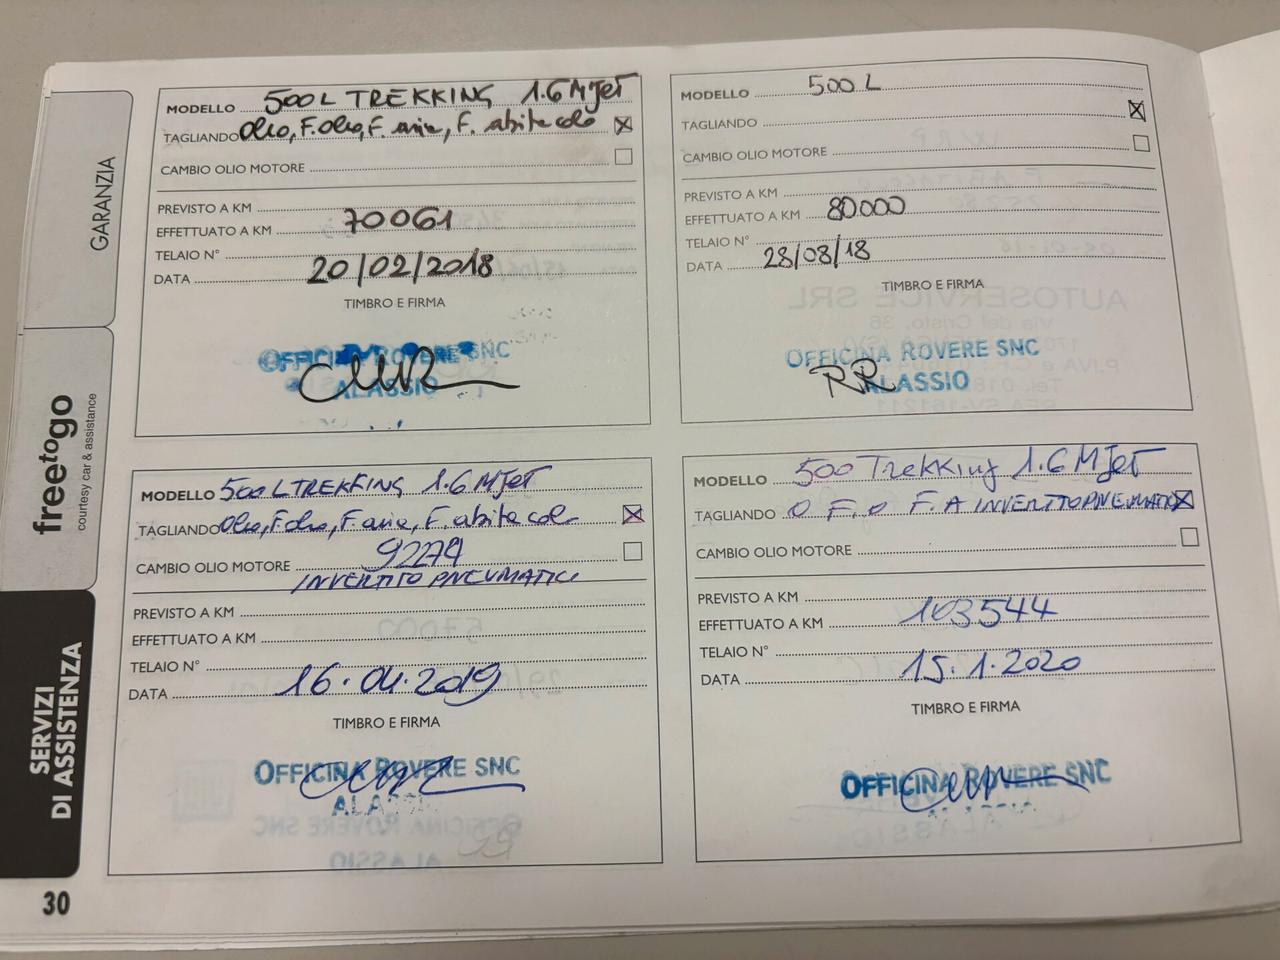 GARANZIA
freetogo
courtesy car & assistance
SERVIZI
DI ASSISTENZA
30
MODELLO 500L TREKKING 1.6 MJET
TAGLIANDO Olio, F.olio, F. aria, F. abitacolo
CAMBIO OLIO MOTORE
PREVISTO A KM
EFFETTUATO A KM 70061
TELAIO N°
DATA 20/02/2018
TIMBRO E FIRMA
OFFICINA ROVERE SNC
ALASSIO
MODELLO 500 L
TAGLIANDO
CAMBIO OLIO MOTORE
PREVISTO A KM
EFFETTUATO A KM 80000
TELAIO N°
DATA 28/08/18
TIMBRO E FIRMA
OFFICINA ROVERE SNC
RR ALASSIO
MODELLO 500 L TREKKING 1.6 MJET
TAGLIANDO Olio, F.olio, F. aria, F. abitacolo
CAMBIO OLIO MOTORE 92274
INVERTITO PNEUMATICI
PREVISTO A KM
EFFETTUATO A KM
TELAIO N°
DATA 16.04.2019
TIMBRO E FIRMA
OFFICINA ROVERE SNC
ALASSIO
MODELLO 500 Trekking 1.6 MJET
TAGLIANDO O F.O F.A INVERTITO PNEUMATICI
CAMBIO OLIO MOTORE
PREVISTO A KM
EFFETTUATO A KM 103544
TELAIO N°
DATA 15.1.2020
TIMBRO E FIRMA
OFFICINA ROVERE SNC